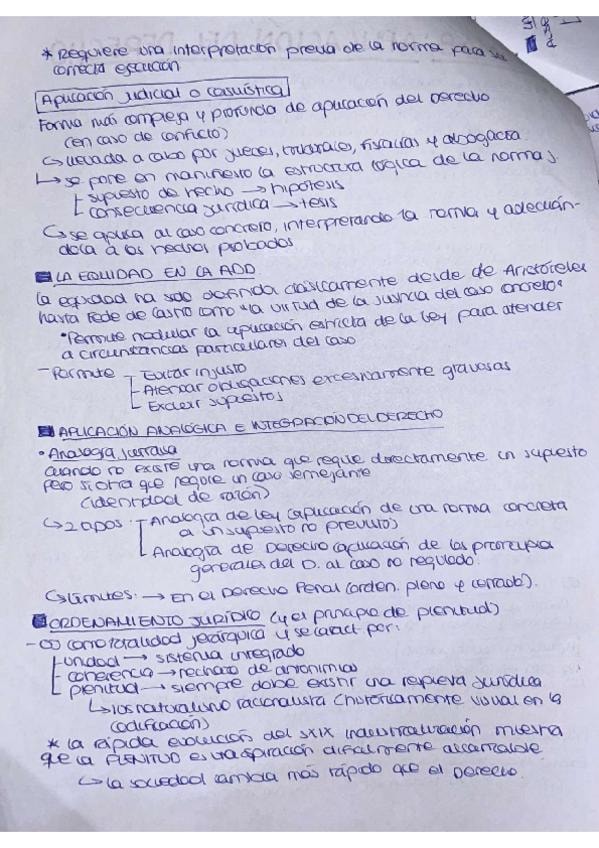 * Requiere una interpretación previa de la norma para su
correcta ejecución
Aplicación judicial o casuística
Forma más compleja y profunda de aplicación del Derecho
(en caso de conflicto)
↳ llevada a cabo por jueces, tribunales, fiscalías y abogacía
↳ se pone en manifiesto la estructura lógica de la norma
supuesto de hecho → hipótesis
consecuencia jurídica → tesis
↳ se aplica al caso concreto, interpretando la norma y adecuán-
dola a los hechos probados
LA EQUIDAD EN LA ADD
La equidad ha sido definida clásicamente desde de Aristóteles
hasta Fede de Castro como "la virtud de la justicia del caso concreto"
• Permite modular la aplicación estricta de la Ley para atender
a circunstancias particulares del caso
- Permite
Evitar injusto
Atenuar obligaciones excesivamente gravosas
Excluir supuestos
APLICACIÓN ANALÓGICA E INTEGRACIÓN DEL DERECHO
• Analogía jurídica
cuando no existe una norma que regule directamente un supuesto
pero si otra que regule un caso semejante
(identidad de razón)
↳ 2 tipos:
Analogía de ley (aplicación de una norma concreta
a un supuesto no previsto)
Analogía de Derecho (aplicación de los principios
generales del D. al caso no regulado.
↳ Límites: → En el Derecho Penal (orden. pleno y cerrado).
ORDENAMIENTO JURÍDICO (y el principio de plenitud)
- OJ como totalidad jerárquica y se caract. por:
unidad → sistema integrado
coherencia → rechazo de antinomias
plenitud → siempre debe existir una respuesta jurídica
↳ iusnaturalismo racionalista (históricamente visual en la
codificación)
* la rápida evolución del SXIX industrialización muestra
que la PLENITUD es una aspiración difícilmente alcanzable
↳ la sociedad cambia más rápido que el Derecho.